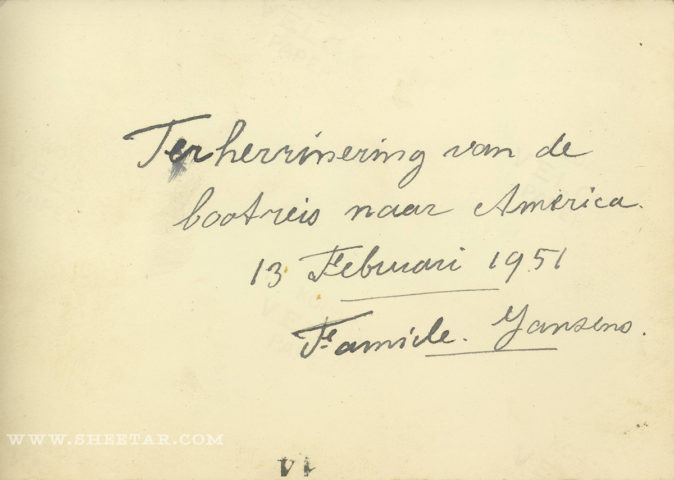 Ter herrinering van de
bootreis naar America.
13 Februari 1951
Famiele. Jansens.
WWW.SHEETAR.COM